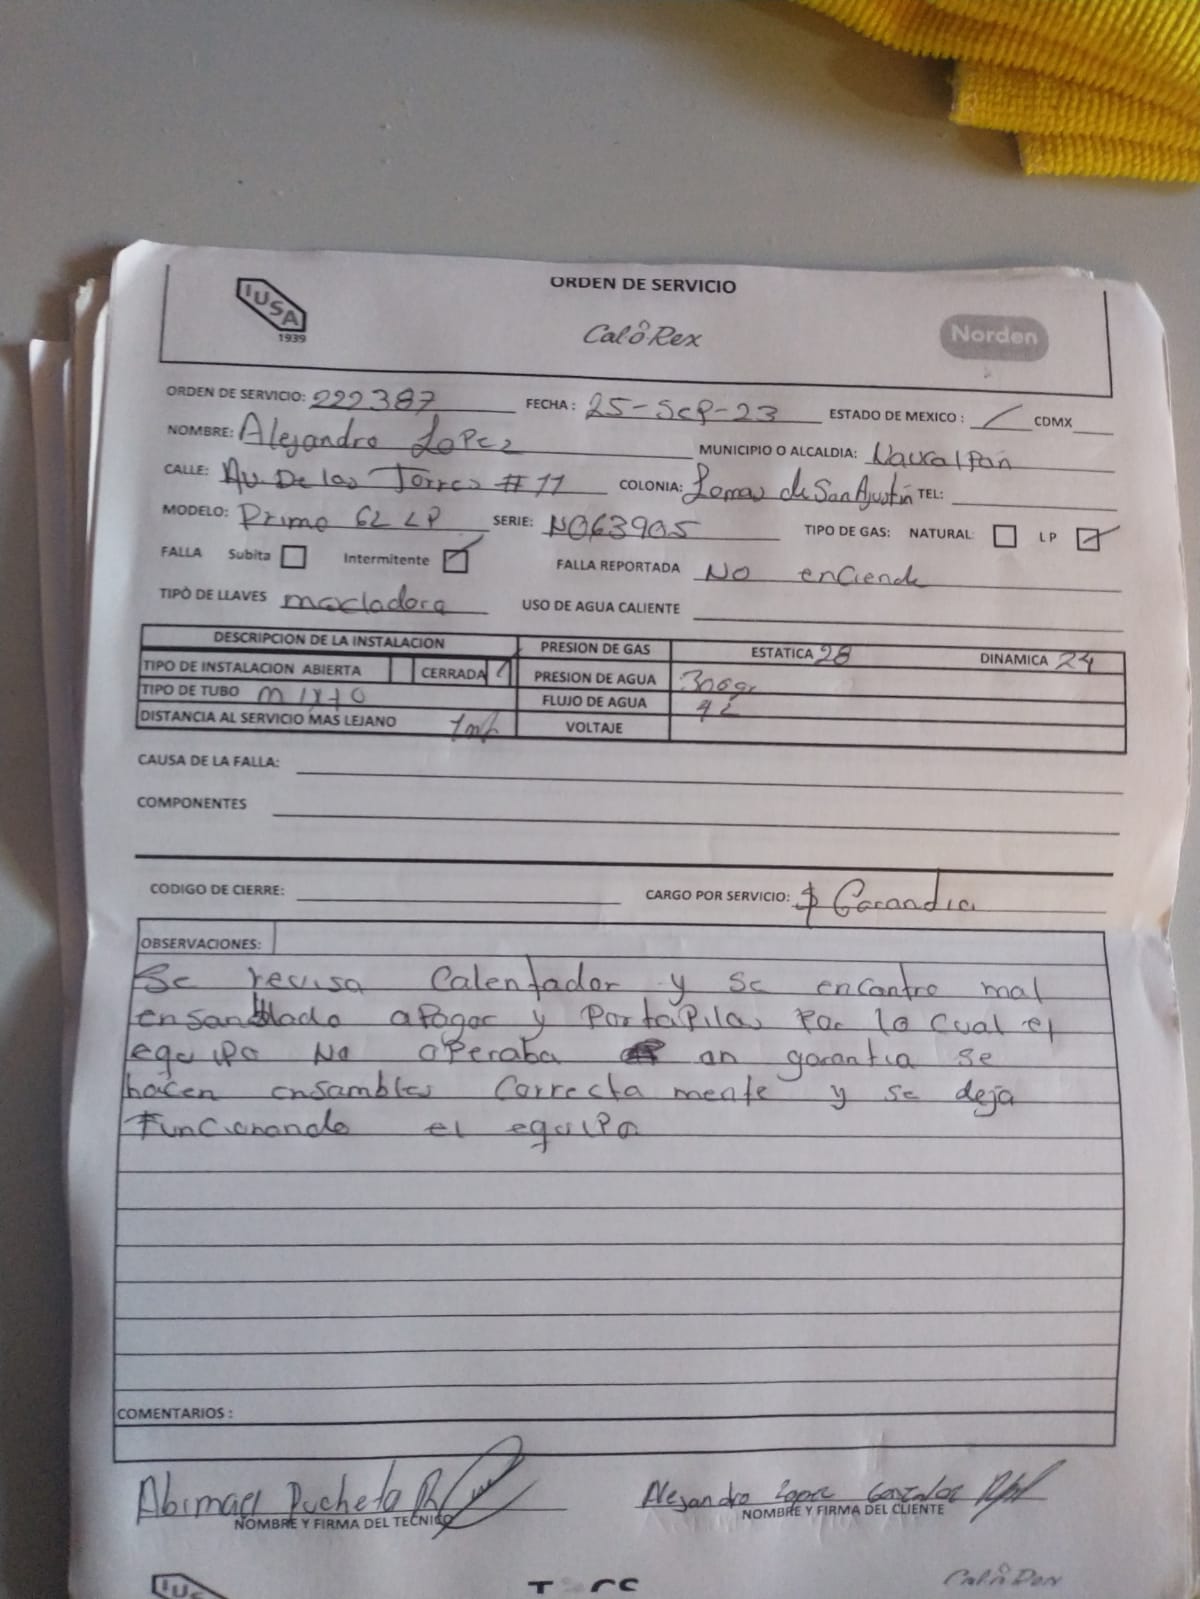 ORDEN DE SERVICIO
IUSA
1939
CalôRex
Norden
ORDEN DE SERVICIO: 222387 FECHA: 25-Sep-23 ESTADO DE MEXICO: / CDMX
NOMBRE: Alejandro Lopez MUNICIPIO O ALCALDIA: Naucalpan
CALLE: Av. De las Torres #11 COLONIA: Lomas de San Agustín TEL:
MODELO: Primo 6L LP SERIE: N063905 TIPO DE GAS: NATURAL: LP
FALLA Subita Intermitente FALLA REPORTADA No enciende
TIPO DE LLAVES mecladora USO DE AGUA CALIENTE
DESCRIPCION DE LA INSTALACION PRESION DE GAS ESTATICA 28 DINAMICA 24
TIPO DE INSTALACION ABIERTA CERRADA PRESION DE AGUA 300gr
TIPO DE TUBO mixto FLUJO DE AGUA 4L
DISTANCIA AL SERVICIO MAS LEJANO VOLTAJE
CAUSA DE LA FALLA:
COMPONENTES
CODIGO DE CIERRE: CARGO POR SERVICIO: $ Garandia
OBSERVACIONES:
Se revisa Calentador y se encontro mal
ensamblado apagor y PortaPilas Por lo cual el
equipo No operaba en garantia se
hacen ensambles correctamente y se deja
Funcionando el equipo
COMENTARIOS:
Abimael Pucheta R
NOMBRE Y FIRMA DEL TECNICO
Alejandro Lopez Gonzalez
NOMBRE Y FIRMA DEL CLIENTE
IUS
CalôRex